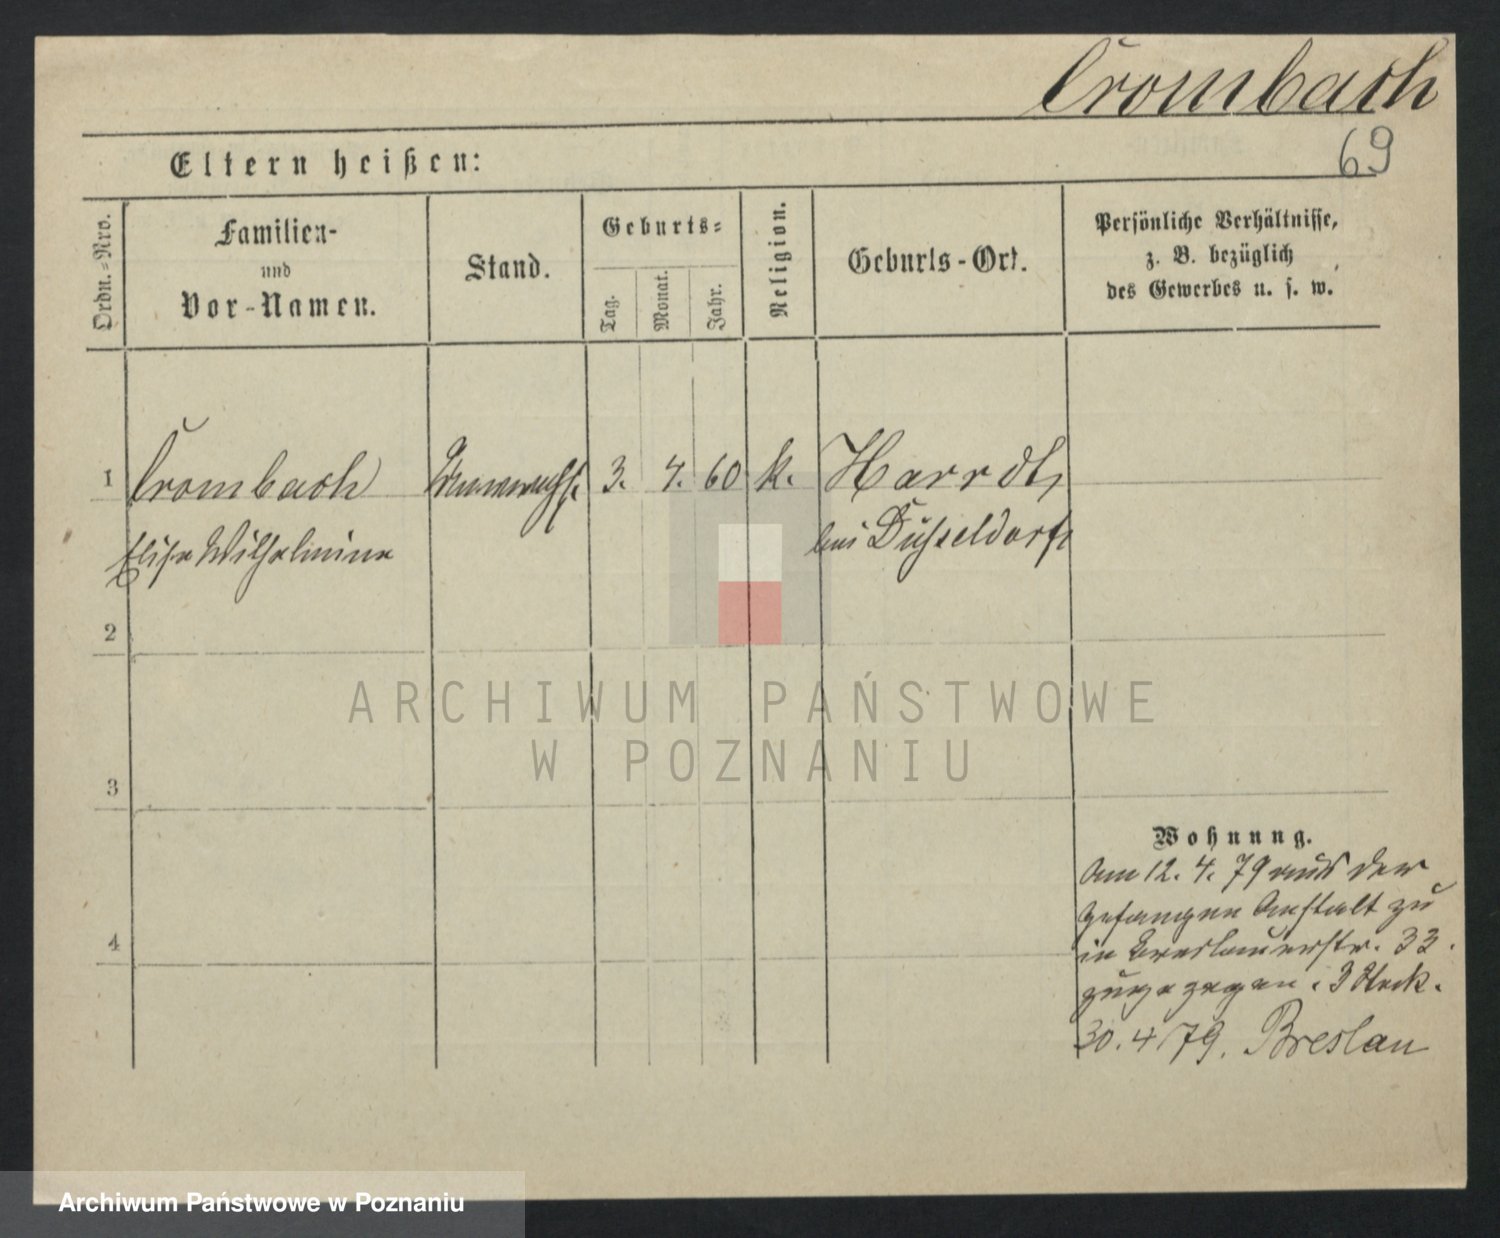 Crombach
69
Eltern heißen:
Ordn.-Nro.
Familien-
und
Vor-Namen.
Stand.
Geburts-
Tag.
Monat.
Jahr.
Religion.
Geburts-Ort.
Persönliche Verhältnisse,
z. B. bezüglich
des Gewerbes u. s. w.
1 Crombach 3. 4. 60 k. Harrdt,
Elise Wilhelmine bei Düsseldorf
2
3
4
Wohnung.
Am 12. 4. 79 aus der
Gefangen Anstalt zu
in Breslauerstr. 33.
zugezogen. 3 Stock.
30. 4. 79. Breslau
ARCHIWUM PAŃSTWOWE
W POZNANIU
Archiwum Państwowe w Poznaniu